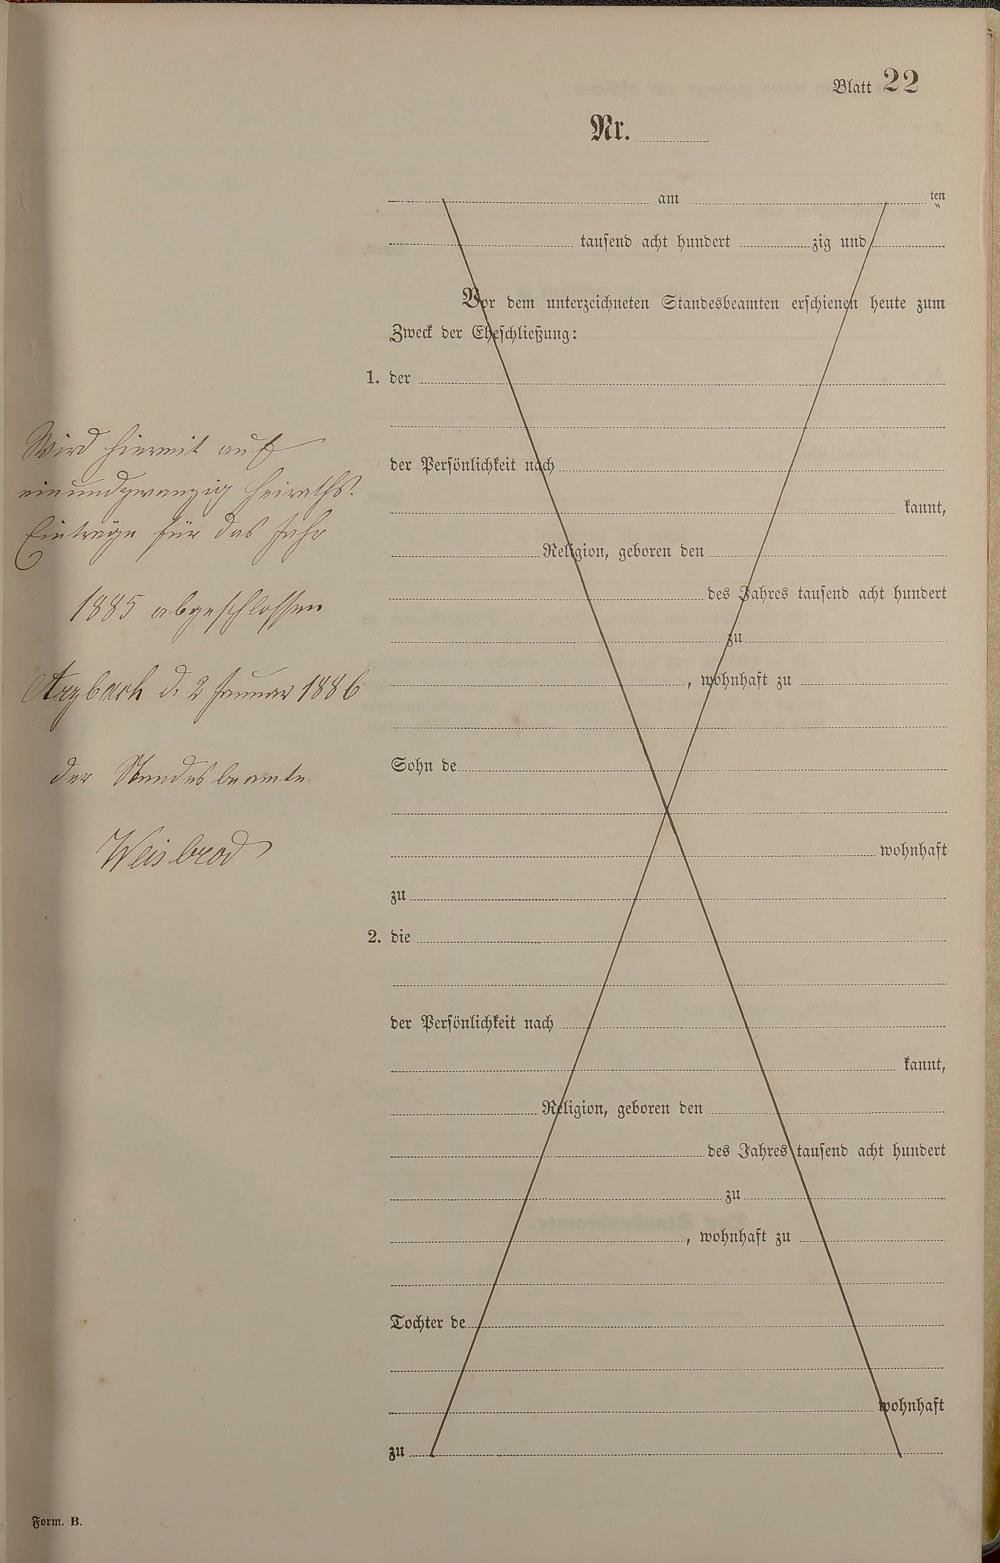 Blatt 22
Nr.
am ten
tausend acht hundert zig und
Vor dem unterzeichneten Standesbeamten erschienen heute zum
Zweck der Eheschließung:
1. der
der Persönlichkeit nach
kannt,
Religion, geboren den
des Jahres tausend acht hundert
zu
, wohnhaft zu
Sohn de
wohnhaft
zu
2. die
der Persönlichkeit nach
kannt,
Religion, geboren den
des Jahres tausend acht hundert
zu
, wohnhaft zu
Tochter de
wohnhaft
zu
Wird hiermit auf
einundzwanzig Heiraths-
Einträge für das Jahr
1885 abgeschlossen
Arzbach d. 2 Januar 1886
der Standesbeamte
Weisbrod
Form. B.